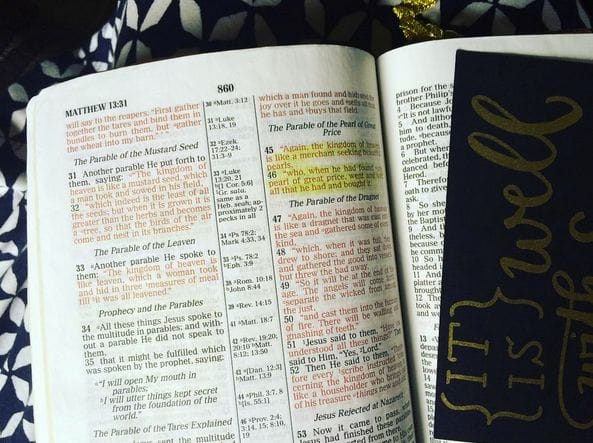 860
MATTHEW 13:31
will say to the reapers, "First gather
together the tares and bind them in
bundles to burn them, but gather
the wheat into my barn."'"
The Parable of the Mustard Seed
31 Another parable He put forth to
them, saying: "The kingdom of
heaven is like a mustard seed, which
a man took and sowed in his field,
32 "which indeed is the least of all
the seeds; but when it is grown it is
greater than the herbs and becomes
a tree, so that the birds of the air
come and nest in its branches."
The Parable of the Leaven
33 Another parable He spoke to
them: "The kingdom of heaven is
like leaven, which a woman took
and hid in three measures of meal
till it was all leavened."
Prophecy and the Parables
34 All these things Jesus spoke to
the multitude in parables; and with-
out a parable He did not speak to
them,
35 that it might be fulfilled which
was spoken by the prophet, saying:
"I will open My mouth in
parables;
I will utter things kept secret
from the foundation of the
world."
The Parable of the Tares Explained
sent the multitude
30 Matt. 3:12
31 Luke
13:18, 19
32 Ezek.
17:22-24;
31:3-9
33 Luke
13:20, 21
[1 Cor. 5:6]
Gr. sata,
same as a
Heb. seah; ap-
proximately 2
pecks in all
34 Ps. 78:2;
Mark 4:33, 34
35 Ps. 78:2
Eph. 3:9
38 Rom. 10:18
John 8:44
39 Rev. 14:15
41 Matt. 18:7
42 Rev. 19:20;
20:10 Matt.
8:12; 13:50
43 [Dan. 12:3]
Matt. 13:9
44 Phil. 3:7, 8
[Is. 55:1]
46 Prov. 2:4;
3:14, 15; 8:10,
19
which a man found and hid; and for
joy over it he goes and sells all that
he has and buys that field.
The Parable of the Pearl of Great
Price
45 "Again, the kingdom of heaven
is like a merchant seeking beautiful
pearls,
46 "who, when he had found one
pearl of great price, went and sold
all that he had and bought it.
The Parable of the Dragnet
47 "Again, the kingdom of heaven
is like a dragnet that was cast into
the sea and gathered some of every
kind,
48 "which, when it was full, they
drew to shore; and they sat down
and gathered the good into vessels,
but threw the bad away.
49 "So it will be at the end of the
age. The angels will come forth,
separate the wicked from among
the just,
50 "and cast them into the furnace
of fire. There will be wailing and
gnashing of teeth."
51 Jesus said to them, "Have you
understood all these things?" They
said to Him, "Yes, Lord."
52 Then He said to them, "There-
fore every scribe instructed con-
cerning the kingdom of heaven is
like a householder who brings out
of his treasure things new and old."
Jesus Rejected at Nazareth
53 Now it came to pass, when
Jesus had finished these parables,
prison for the s
brother Philip's
4 Because Je
"It is not lawful
5 And altho
him to death
tude, because
a prophet.
6 But when
celebrated, the
danced before
7 Therefore
oath to give
ask.
8 So she
by her mo
the Baptist
9 And
theless, b
because o
he comm
10 So he
headed
11 And
platter
12 The
took aw
{IT}
{IS}
well
with